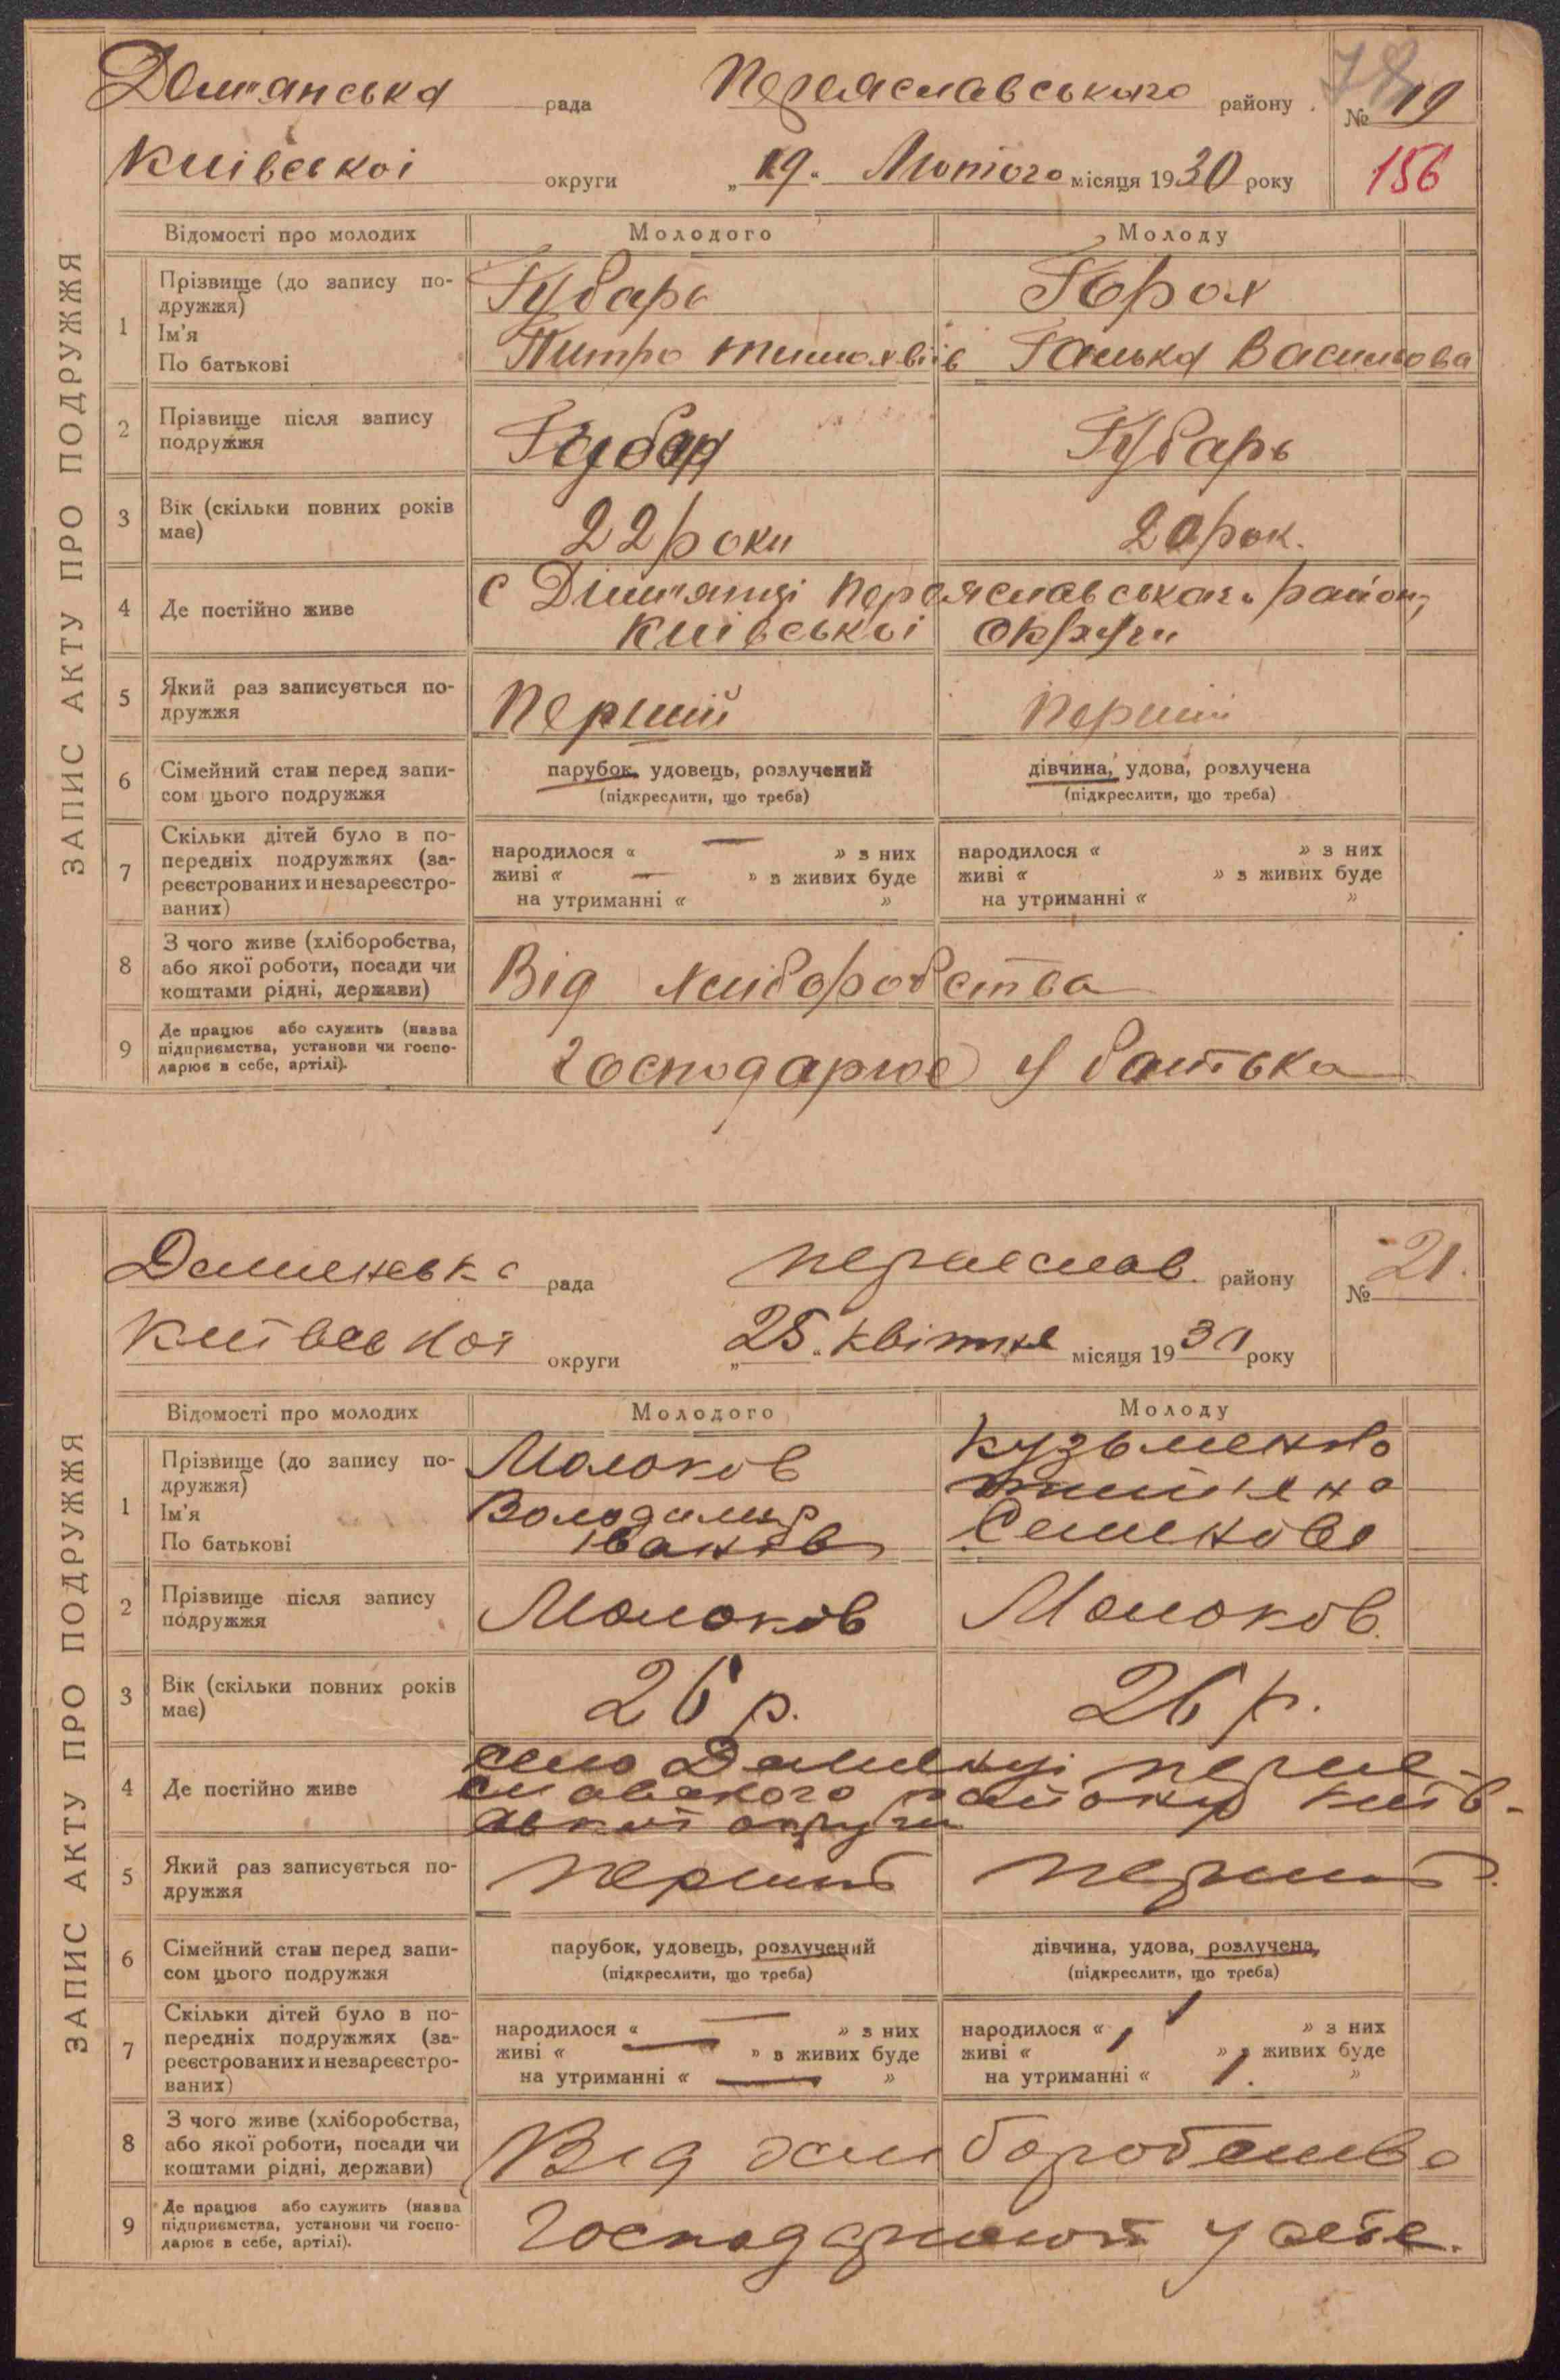 Дем'янська рада Переяславського району № 19
Київської округи „19“ Лютого місяця 1930 року 156
ЗАПИС АКТУ ПРО ПОДРУЖЖЯ
Відомості про молодих Молодого Молоду
1 Прізвище (до запису по-
дружжя) Губарь
Ім'я
По батькові Ганька Василова
2 Прізвище після запису
подружжя Губар Губарь
3 Вік (скільки повних років
має) 22 роки 20 рок.
4 Де постійно живе с Дімьянці Переяславського району
Київської Округи
5 Який раз записується по-
дружжя Перший Перший
6 Сімейний стан перед запи-
сом цього подружжя
парубок, удовець, розлучений дівчина, удова, розлучена
(підкреслити, що треба) (підкреслити, що треба)
7 Скільки дітей було в по-
передніх подружжях (за-
реєстрованих и незареєстро-
ваних)
народилося « — » з них народилося « » з них
живі « — » з живих буде живі « » з живих буде
на утриманні « » на утриманні « »
8 З чого живе (хліборобства,
або якої роботи, посади чи
коштами рідні, держави) Від хліборобства
9 Де працює або служить (назва
підприємства, установи чи госпо-
дарює в себе, артілі). Господарює У батька
рада району № 21.
округи „25“ квітня місяця 1930 року
ЗАПИС АКТУ ПРО ПОДРУЖЖЯ
Відомості про молодих Молодого Молоду
1 Прізвище (до запису по-
дружжя) Молоков Кузьменко
Ім'я Володимир
По батькові Іванов Семенова
2 Прізвище після запису
подружжя Молоков Молоков.
3 Вік (скільки повних років
має) 26 р. 26 р.
4 Де постійно живе село Демьянці перея-
славського району київ-
ської округи
5 Який раз записується по-
дружжя перший перший
6 Сімейний стан перед запи-
сом цього подружжя
парубок, удовець, розлучений дівчина, удова, розлучена,
(підкреслити, що треба) (підкреслити, що треба)
7 Скільки дітей було в по-
передніх подружжях (за-
реєстрованих и незареєстро-
ваних)
народилося « — » з них народилося « 1 » з них
живі « — » з живих буде живі « 1 » з живих буде
на утриманні « — » на утриманні « 1. »
8 З чого живе (хліборобства,
або якої роботи, посади чи
коштами рідні, держави) Від хліборобства
9 Де працює або служить (назва
підприємства, установи чи госпо-
дарює в себе, артілі). Господарюют у себе.